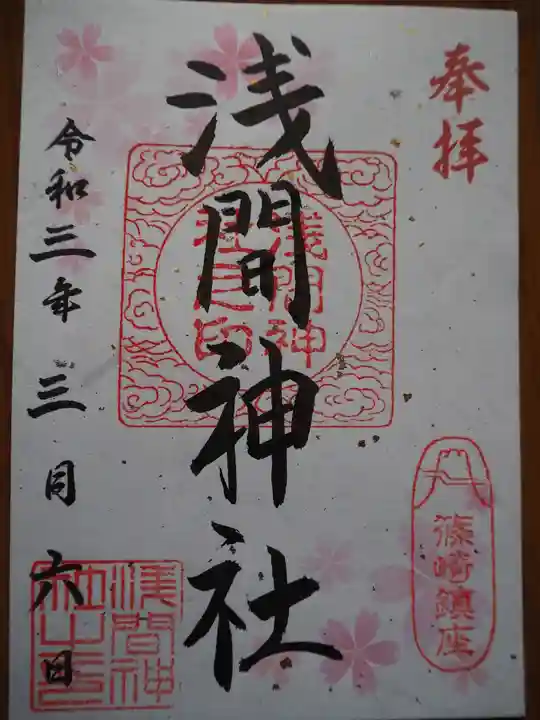 奉拝
篠崎鎮座
浅間神社
淺間神
社之印
令和三年三月六日
淺間神